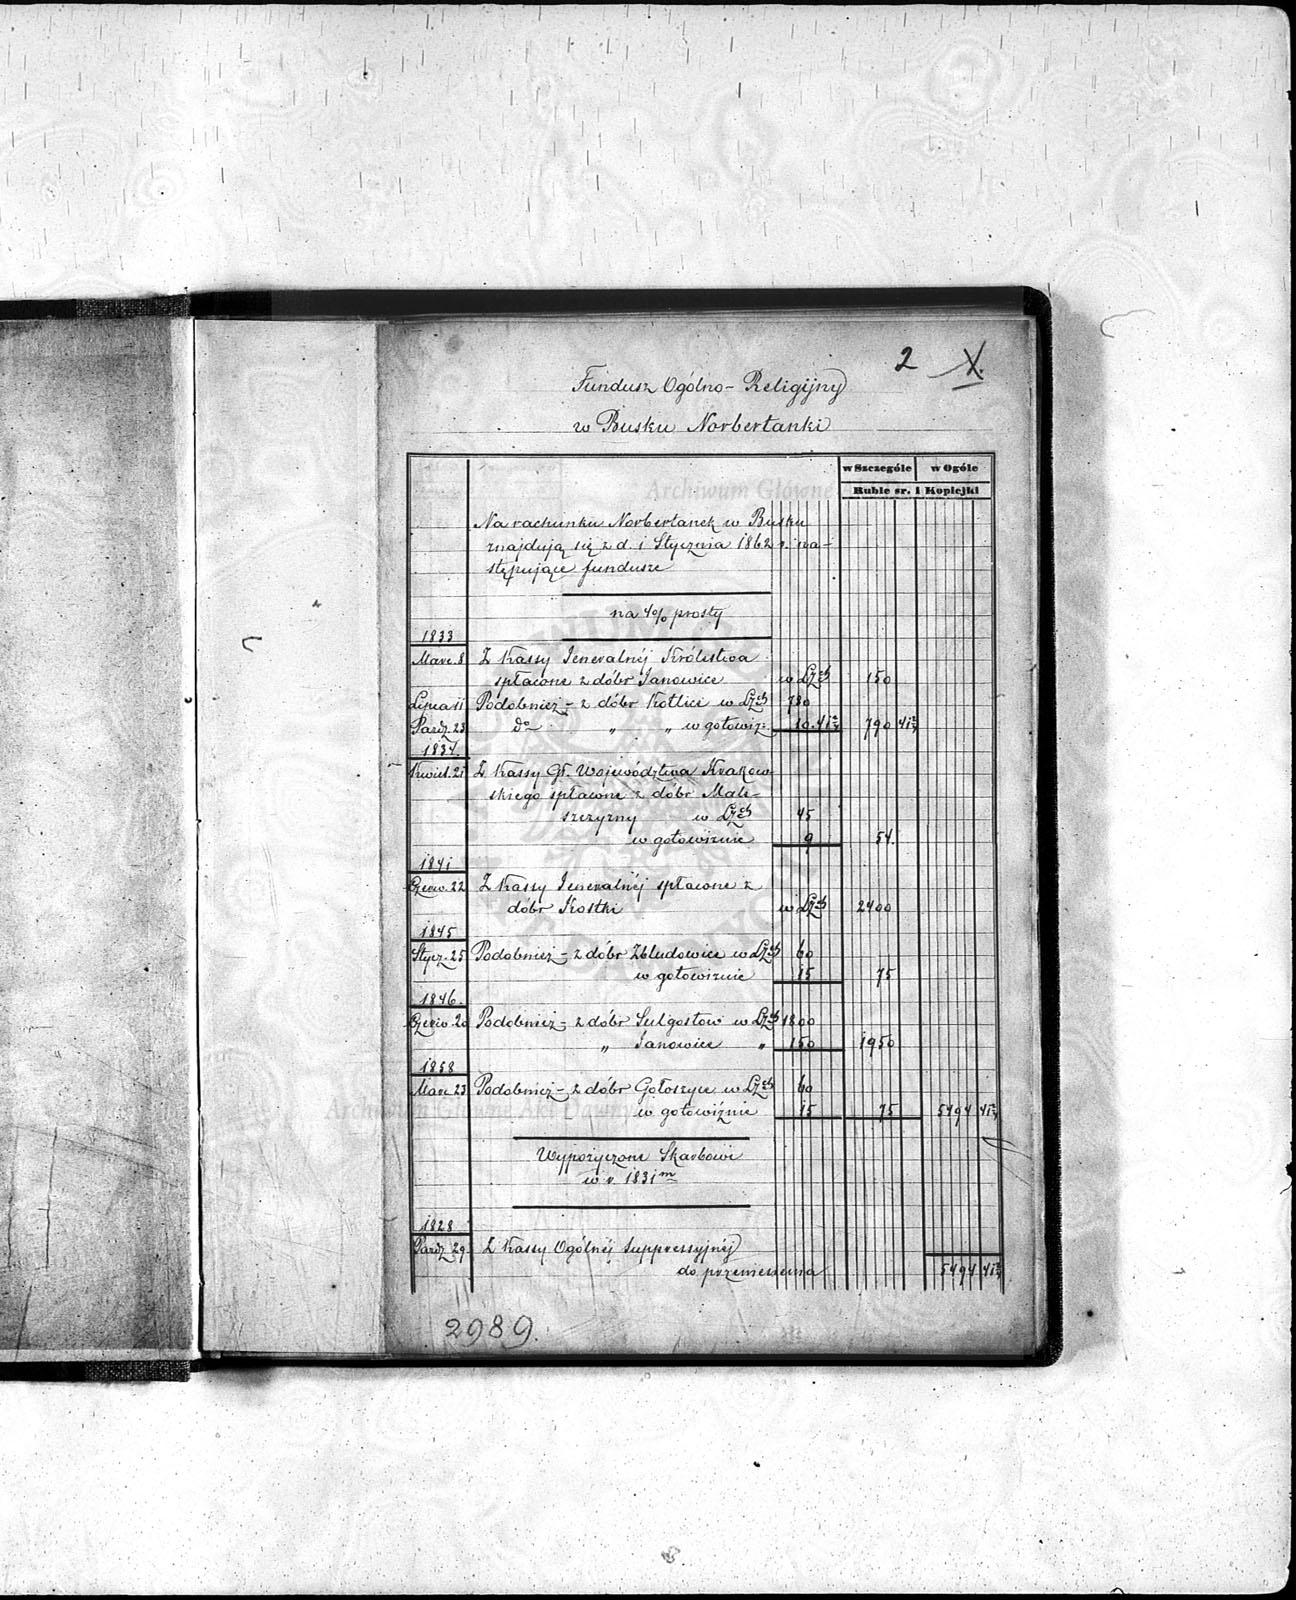 2 X.
Fundusz Ogólno-Religijny
w Busku Norbertanki
w Szczególe w Ogóle
Ruble sr. i Kopiejki
Archiwum Główne
Na rachunku Norbertanek w Busku
znajdują się z d. 1 Stycznia 1862 r. na-
stępujące fundusze
na 4% prosty
1833
Marc. 8 Z Kassy Jeneralnéj Królestwa
spłacone z dóbr Janowice w Lzch 150
Lipca 11 Podobnież - z dóbr Kotlice w Lzch 780
Paźdz. 23 do " " w gotowiz: 10.41 790 41
1834.
Kwiet. 21 Z Kassy Gł. Województwa Krakow-
skiego spłacone z dóbr Male-
szyzny w Lzch 45
w gotowiznie 9 54.
1841
Czerw. 22 Z Kassy Jeneralnéj spłacone z
dóbr Kostki w Lzch 2400
1845
Stycz. 25 Podobnież - z dóbr Zbludowice w Lzch 60
w gotowiznie 15 75
1846.
Czerw. 20 Podobnież - z dóbr Sulgostow w Lzch 1800
" Janowice " 150 1950
1858
Marc. 23 Podobnież - z dóbr Gołoszyce w Lzch 60
Archiwum Główne Akt Dawnych
w gotowiźnie 15 75 5494 41
Wypożyczone Skarbowi
w r. 1831m
1828
Paźdz. 29. Z Kassy Ogólnéj Suppressyjnéj
do przeniesienia 5494 41
2989.